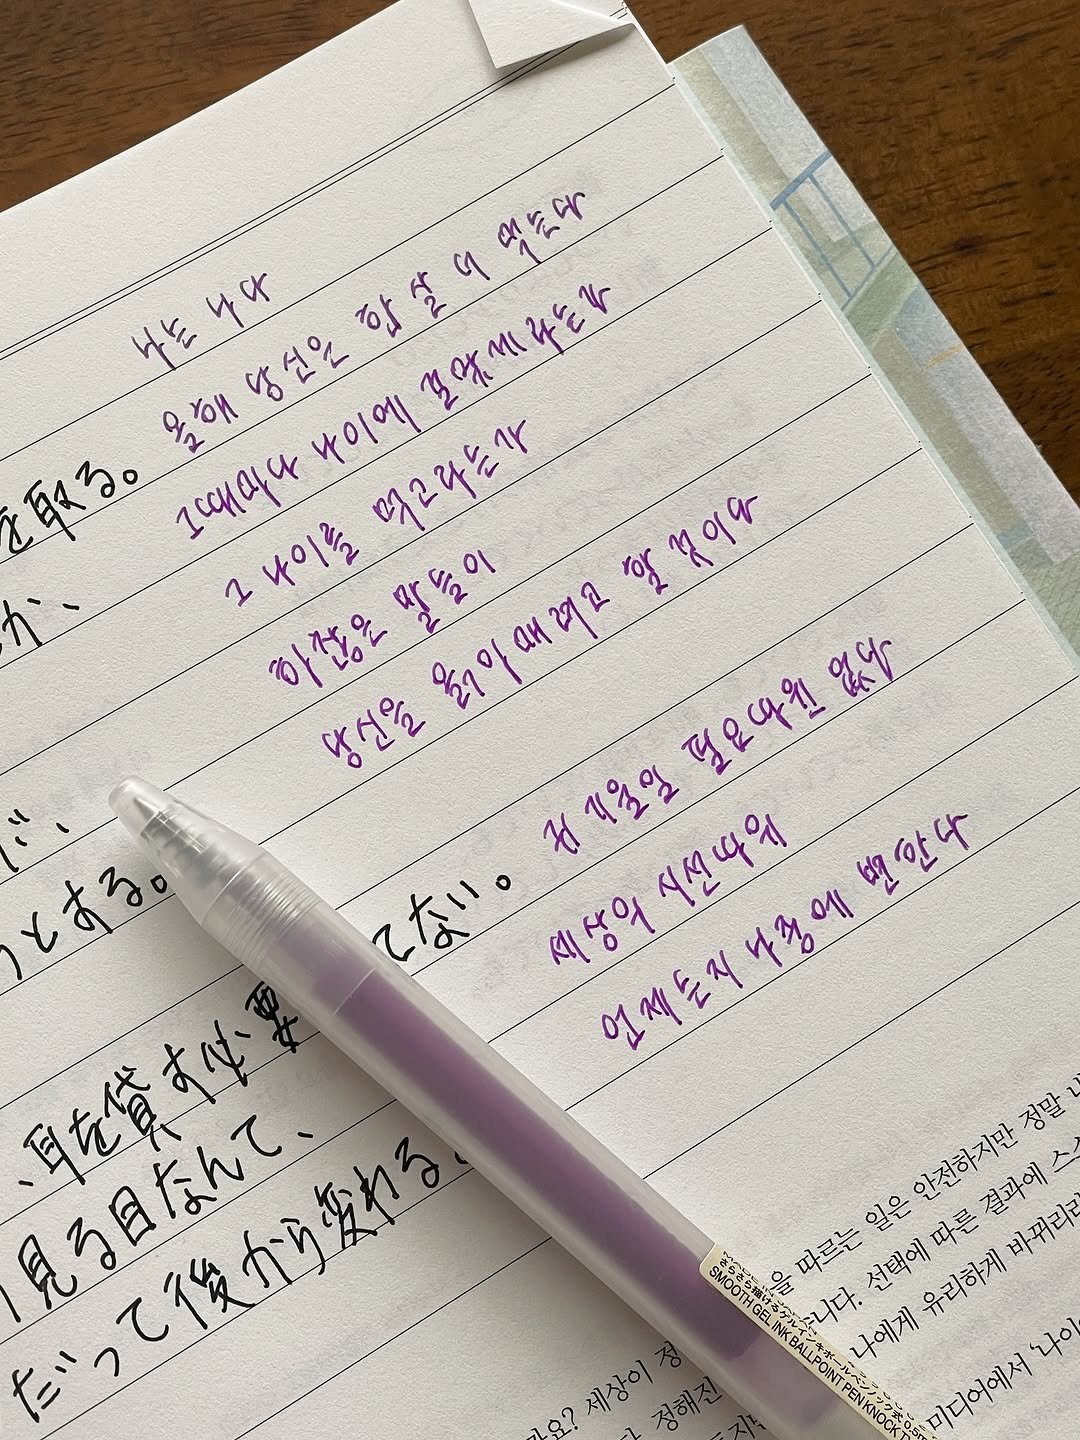 나는 나다
올해 당신은 한 살 더 먹는다
그때마다 나이에 걸맞게라는가
그 나이를 먹고라는가
하찮은 말들이
당신을 옭아매려고 할 것이다
귀 기울일 필요따윈 없다
세상의 시선따위
언제든지 나중에 변한다
を取る。
か、
だ、
とする。
てない。
、耳を貸す必要
見る目なんて、
だって後から変わる。
을 따르는 일은 안전하지만 정말 내
니다. 선택에 따른 결과에 스스
나에게 유리하게 바뀌리라
미디어에서 '나이
요? 세상이 정
정해진
さらさら描けるゲルインキボールペンノック式 0.5m
SMOOTH GEL INK BALLPOINT PEN KNOCK T